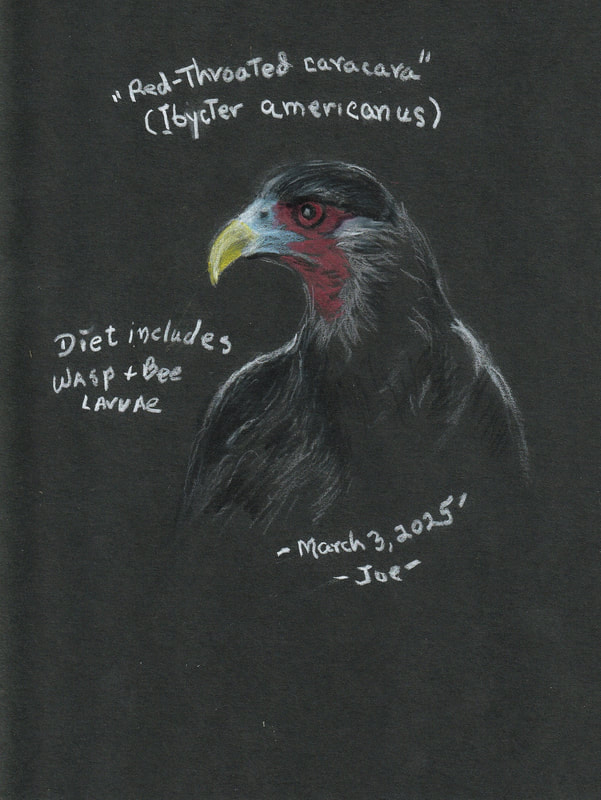 "Red-Throated caracara"
(Ibycter americanus)
Diet includes
Wasp + Bee
Larvae
- March 3, 2025'
- Joe -